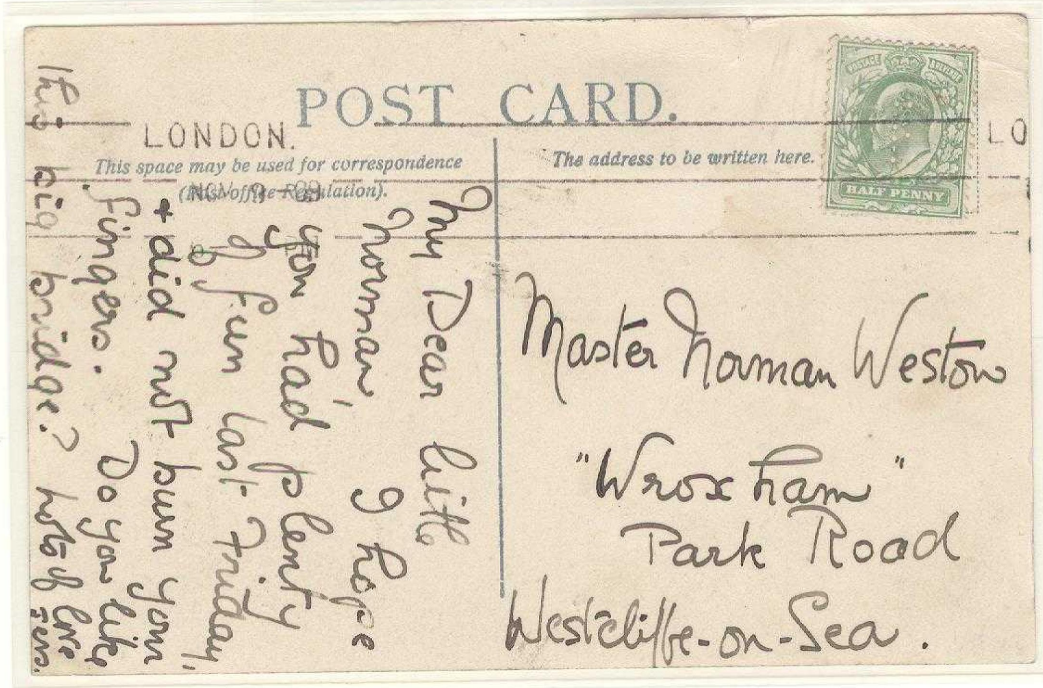 POST CARD.
LONDON.
This space may be used for correspondence
(Inland Office Regulation).
NOV 9 - 09
The address to be written here.
POSTAGE REVENUE
HALF PENNY
LO
My Dear little
Norman I hope
you had plenty
of fun last Friday,
+ did not burn your
fingers. Do you like
this big bridge? lots of love
Master Norman Weston
"Wroxham"
Park Road
Westcliffe-on-Sea.